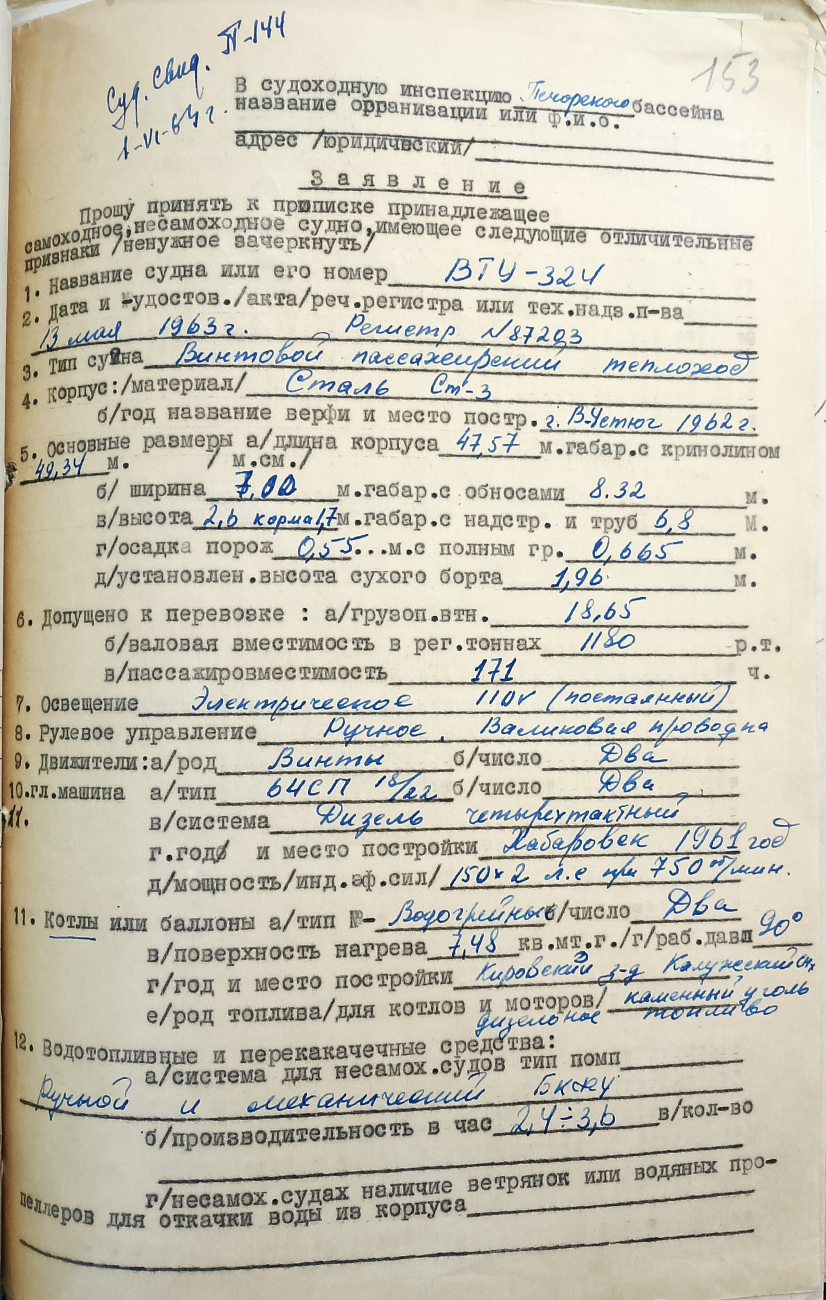 Суд. Свид. П-144
1-VI-64 г.
153
В судоходную инспекцию Печорского бассейна
название орранизации или ф.и.о.
адрес /юридический/
З а я в л е н и е
Прошу принять к приписке принадлежащее
самоходное, несамоходное судно, имеющее следующие отличительные
признаки /ненужное зачеркнуть/
1. Название судна или его номер ВТУ-324
2. Дата и -удостов./акта/реч.регистра или тех.надз.п-ва
13 мая 1963 г. Регистр N 87203
3. Тип судна Винтовой пассажирский теплоход
4. Корпус:/материал/ Сталь Ст-3
б/год название верфи и место постр. г. В-Устюг 1962 г.
5. Основные размеры а/длина корпуса 47,57 м.габар.с кринолином
49,34 м. / м.см./
б/ ширина 7,00 м.габар.с обносами 8.32 м.
в/высота 2,6 корма 1,7 м.габар.с надстр. и труб 6,8 м.
г/осадка порож 0,55...м.с полным гр. 0,665 м.
д/установлен.высота сухого борта 1,96 м.
6. Допущено к перевозке : а/грузоп.втн. 18,65
б/валовая вместимость в рег.тоннах 1180 р.т.
в/пассажировместимость 171 ч.
7. Освещение Электрическое 110v (постаянный)
8. Рулевое управление Ручное, Валиковая проводка
9. Движители:а/род Винты б/число Два
10.гл.машина а/тип 6ЧСП 18/22 б/число Два
11. в/система Дизель четырехтактный
г.год и место постройки Хабаровск 1961 год
д/мощность/инд.эф.сил/ 150 x 2 л.с при 750 об/мин.
11. Котлы или баллоны а/тип №- Водогрейные б/число Два
в/поверхность нагрева 7,48 кв.мт.г./г/раб.давл 90°
г/год и место постройки Кировский з-д Калужский
е/род топлива/для котлов и моторов/ каменный уголь
дизельное топливо
12. Водотопливные и перекакачечные средства:
а/система для несамох.судов тип помп
Ручной и механический
б/производительность в час 2,4÷3,6 в/кол-во
г/несамох.судах наличие ветрянок или водяных про-
пеллеров для откачки воды из корпуса